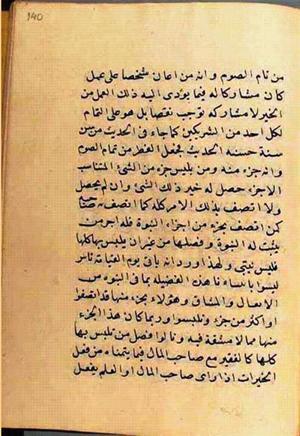 140
من تمام الصوم وانه من اعان شخصا على عمل
كان مشاركا له فيما يؤدى اليه ذلك العمل من
الخير لا مشاركة توجب نقصا بل هو على التمام
لكل احد من الشريكين كما جاء فى الحديث من سن
سنة حسنة الحديث فجعل الفطر من تمام الصوم
وانه جزء منه ومن تلبس بجزء من الشئ المناسب
الاجزاء حصل له خير ذلك الشئ وان لم يحصل
ولا اتصف بذلك الامر كله كما اتصف به صاحبه
كمن اتصف بجزء من اجزاء النبوة فله اجر من
يثبت له النبوة وفضلها من غير ان يتلبس بها كلها
فليس بنبى ولهذا ورد انه ياتى يوم القيامة ناس
ليسوا بانبياء نالوا هذه الفضيلة بما فى النبوة من
الاثقال والمشاق وهؤلاء بجزء منها قد اتصفوا
او اكثر من جزء وتلبسوا وربما كان هذا الجزء
منها مما لا مشقة فيه ونالوا فضل من تلبس بها
كلها كالفقير مع صاحب المال فيما يتمناه من فعل
الخيرات اذا راى صاحب المال او العلم يفعل